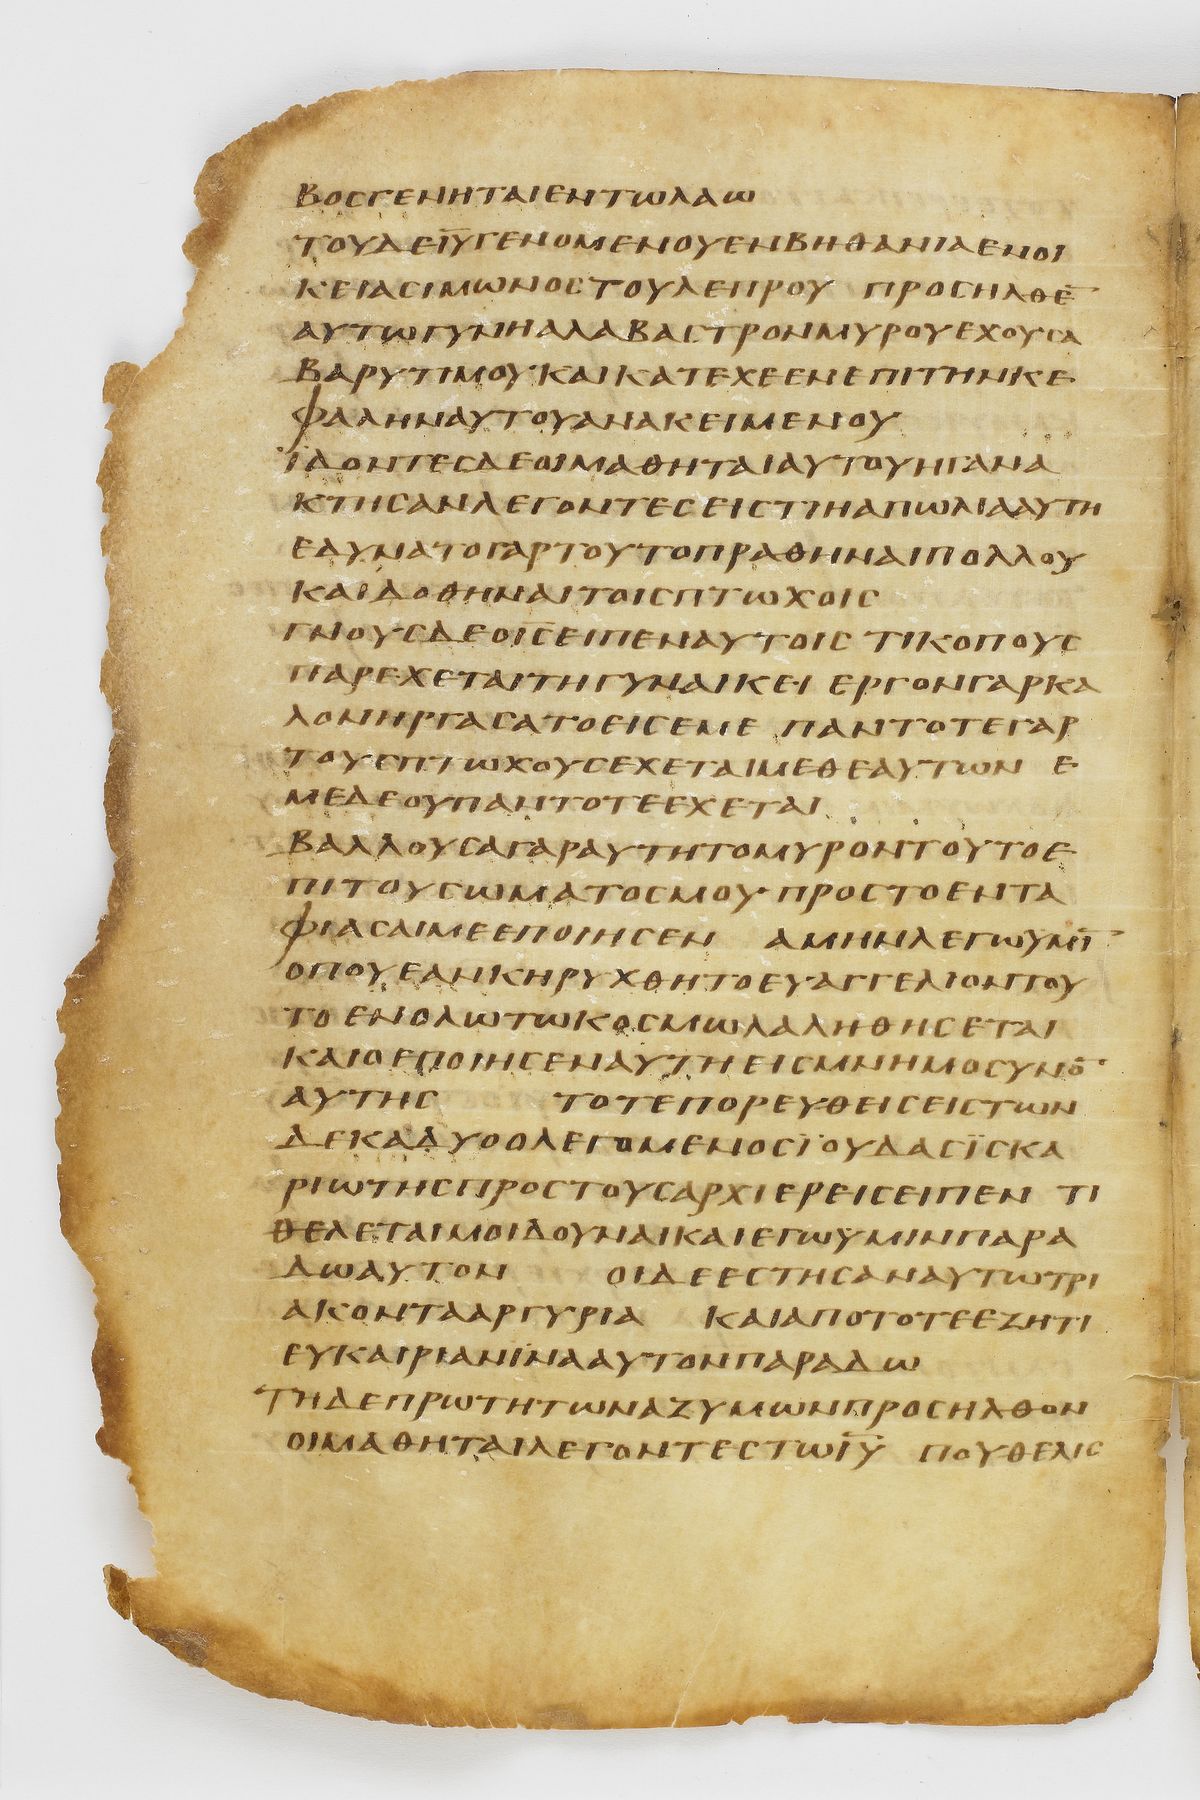 ΒΟСΓΕΝΗΤΑΙΕΝΤωΛΑω
ΤΟΥΔΕΙ̅Υ̅ΓΕΝΟΜΕΝΟΥΕΝΒΗΘΑΝΙΑΕΝΟΙ
ΚΕΙΑСΙΜωΝΟСΤΟΥΛΕΠΡΟΥ ΠΡΟСΗΛΘΕ̅
ΑΥΤωΓΥΝΗΑΛΑΒΑСΤΡΟΝΜΥΡΟΥΕΧΟΥСΑ
ΒΑΡΥΤΙΜΟΥ·ΚΑΙΚΑΤΕΧΕΕΝΕΠΙΤΗΝΚΕ
ΦΑΛΗΝΑΥΤΟΥΑΝΑΚΕΙΜΕΝΟΥ
ΪΔΟΝΤΕСΔΕΟΙΜΑΘΗΤΑΙΑΥΤΟΥΗΓΑΝΑ
ΚΤΗСΑΝΛΕΓΟΝΤΕСΕΙСΤΙΗΑΠωΛΙΑΑΥΤΗ
ΕΔΥΝΑΤΟΓΑΡΤΟΥΤΟΠΡΑΘΗΝΑΙΠΟΛΛΟΥ
ΚΑΙΔΟΘΗΝΑΙΤΟΙСΠΤωΧΟΙС
ΓΝΟΥСΔΕΟΙ̅С̅ΕΙΠΕΝΑΥΤΟΙС ΤΙΚΟΠΟΥС
ΠΑΡΕΧΕΤΑΙΤΗΓΥΝΑΙΚΕΙ ΕΡΓΟΝΓΑΡΚΑ
ΛΟΝΗΡΓΑСΑΤΟΕΙСΕΜΕ ΠΑΝΤΟΤΕΓΑΡ
ΤΟΥСΠΤωΧΟΥСΕΧΕΤΑΙΜΕΘΕΑΥΤωΝ Ε
ΜΕΔΕΟΥΠΑΝΤΟΤΕΕΧΕΤΑΙ
ΒΑΛΛΟΥСΑΓΑΡΑΥΤΗΤΟΜΥΡΟΝΤΟΥΤΟΕ
ΠΙΤΟΥСωΜΑΤΟСΜΟΥ·ΠΡΟСΤΟΕΝΤΑ
ΦΙΑСΑΙΜΕΕΠΟΙΗСΕΝ ΑΜΗΝΛΕΓωΫΜΙ̅
ΟΠΟΥΕΑΝΚΗΡΥΧΘΗΤΟΕΥΑΓΓΕΛΙΟΝΤΟΥ
ΤΟΕΝΟΛωΤωΚΟСΜωΛΑΛΗΘΗСΕΤΑΙ
ΚΑΙΟΕΠΟΙΗСΕΝΑΥΤΗΕΙСΜΝΗΜΟСΥΝΟ̅
ΑΥΤΗС ΤΟΤΕΠΟΡΕΥΘΕΙСΕΙСΤωΝ
ΔΕΚΑΔΥΟΟΛΕΓΟΜΕΝΟСΪΟΥΔΑСΪСΚΑ
ΡΙωΤΗСΠΡΟСΤΟΥСΑΡΧΙΕΡΕΙСΕΙΠΕΝ ΤΙ
ΘΕΛΕΤΑΙΜΟΙΔΟΥΝΑΙΚΑΙΕΓωΫΜΙΝΠΑΡΑ
ΔωΑΥΤΟΝ ΟΙΔΕΕСΤΗСΑΝΑΥΤωΤΡΙ
ΑΚΟΝΤΑΑΡΓΥΡΙΑ ΚΑΙΑΠΟΤΟΤΕΕΖΗΤΙ
ΕΥΚΑΙΡΙΑΝΪΝΑΑΥΤΟΝΠΑΡΑΔω
ΤΗΔΕΠΡωΤΗΤωΝΑΖΥΜωΝΠΡΟСΗΛΘΟΝ
ΟΙΜΑΘΗΤΑΙΛΕΓΟΝΤΕСΤωΙ̅Υ̅ ΠΟΥΘΕΛΙС